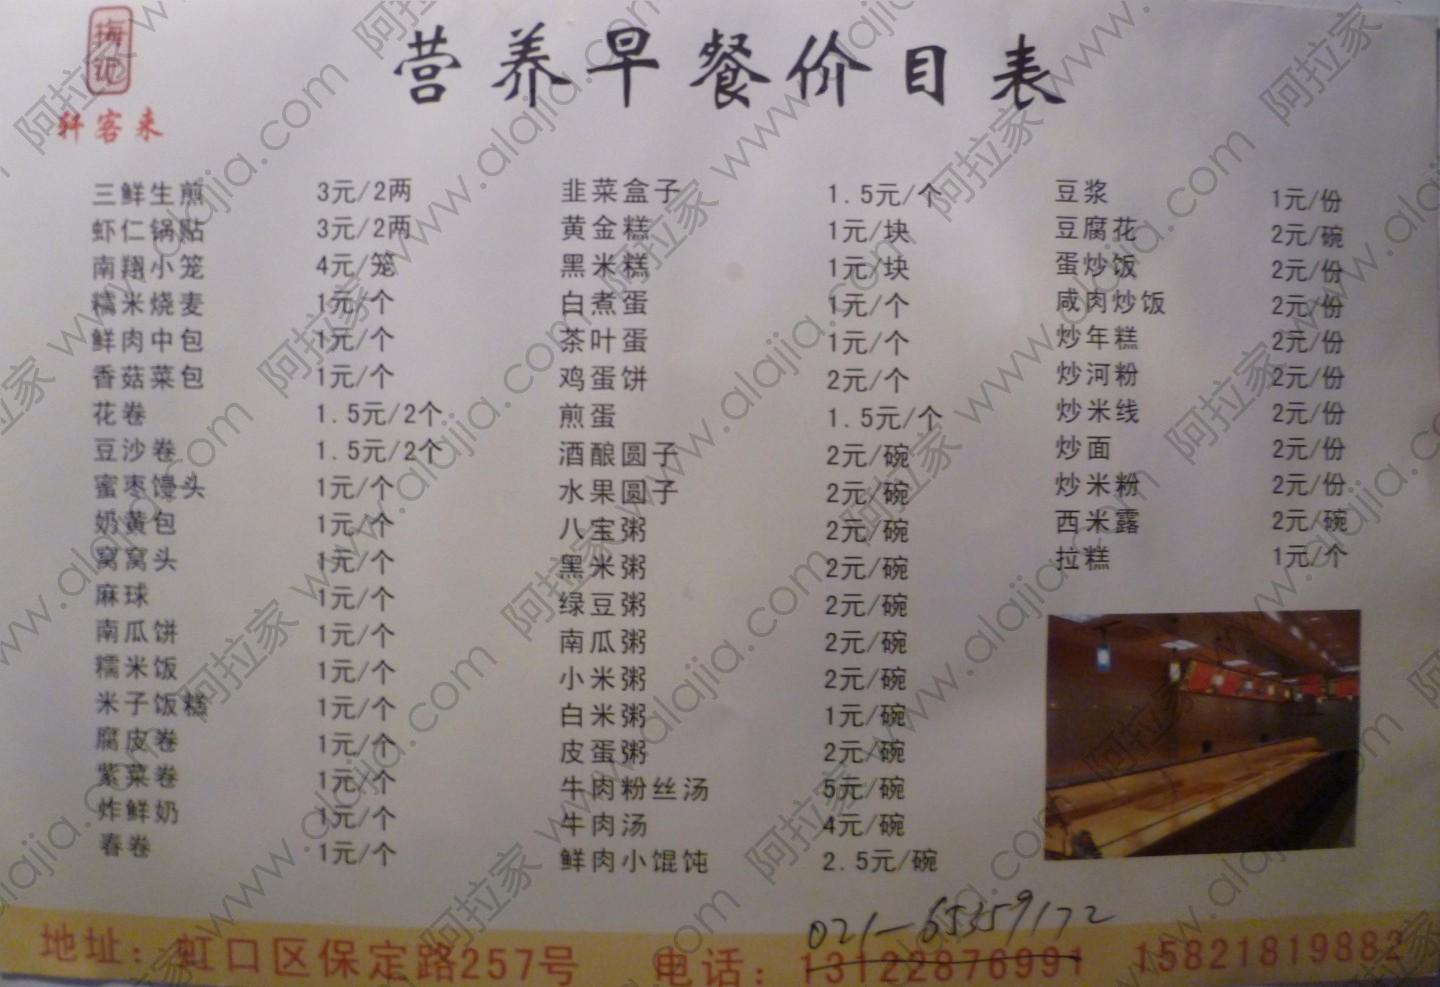 梅记
轩客来
营养早餐价目表
三鲜生煎 3元/2两
虾仁锅贴 3元/2两
南翔小笼 4元/笼
糯米烧麦 1元/个
鲜肉中包 1元/个
香菇菜包 1元/个
花卷 1.5元/2个
豆沙卷 1.5元/2个
蜜枣馒头 1元/个
奶黄包 1元/个
窝窝头 1元/个
麻球 1元/个
南瓜饼 1元/个
糯米饭 1元/个
米子饭糕 1元/个
腐皮卷 1元/个
紫菜卷 1元/个
炸鲜奶 1元/个
春卷 1元/个
韭菜盒子 1.5元/个
黄金糕 1元/块
黑米糕 1元/块
白煮蛋 1元/个
茶叶蛋 1元/个
鸡蛋饼 2元/个
煎蛋 1.5元/个
酒酿圆子 2元/碗
水果圆子 2元/碗
八宝粥 2元/碗
黑米粥 2元/碗
绿豆粥 2元/碗
南瓜粥 2元/碗
小米粥 2元/碗
白米粥 1元/碗
皮蛋粥 2元/碗
牛肉粉丝汤 5元/碗
牛肉汤 4元/碗
鲜肉小馄饨 2.5元/碗
豆浆 1元/份
豆腐花 2元/碗
蛋炒饭 2元/份
咸肉炒饭 2元/份
炒年糕 2元/份
炒河粉 2元/份
炒米线 2元/份
炒面 2元/份
炒米粉 2元/份
西米露 2元/碗
拉糕 1元/个
021-65359172
地址：虹口区保定路257号 电话：13122876991 15821819882
阿拉家 www.alajia.com